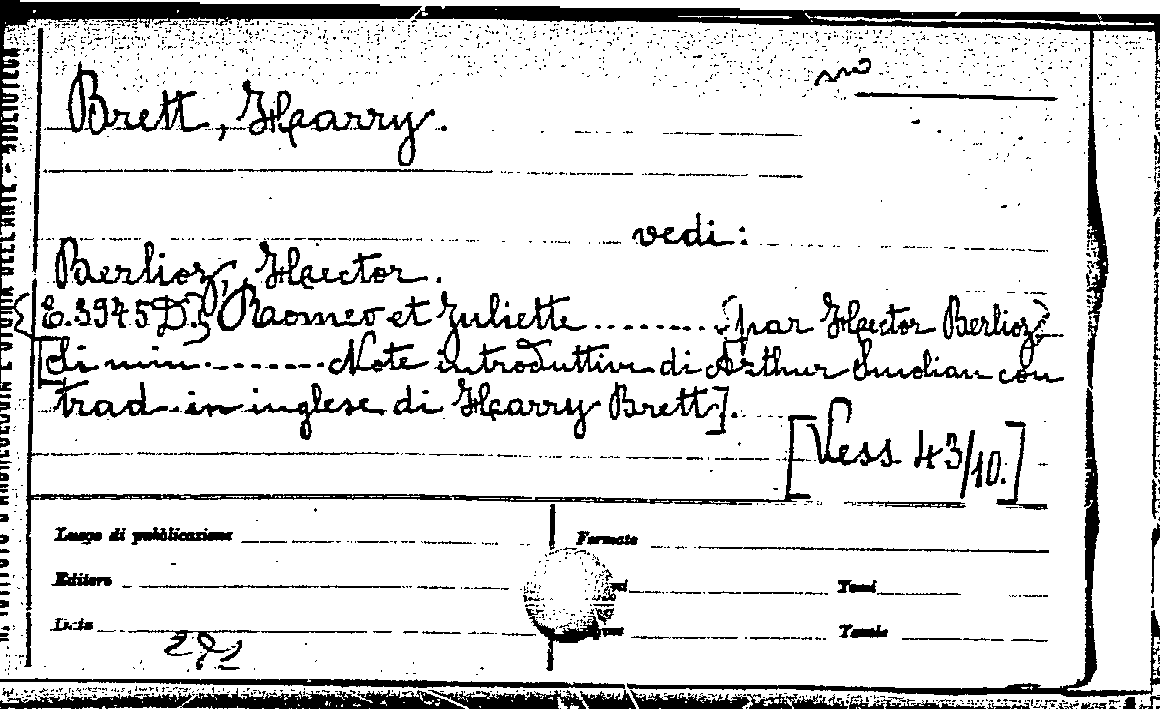 Brett, Harry.
vedi:
Berlioz, Hector.
[E.3945D.] Romeo et Juliette ......... [par Hector Berlioz]
[di min......... Note introduttive di Arthur Smolian con
trad. in inglese di Harry Brett].
[Vess 43/10.]
Luogo di pubblicazione
Formato
Editore
Tomi
Data
Tavole
R. ISTITUTO D'ARCHEOLOGIA E STORIA DELL'ARTE - BIBLIOTECA